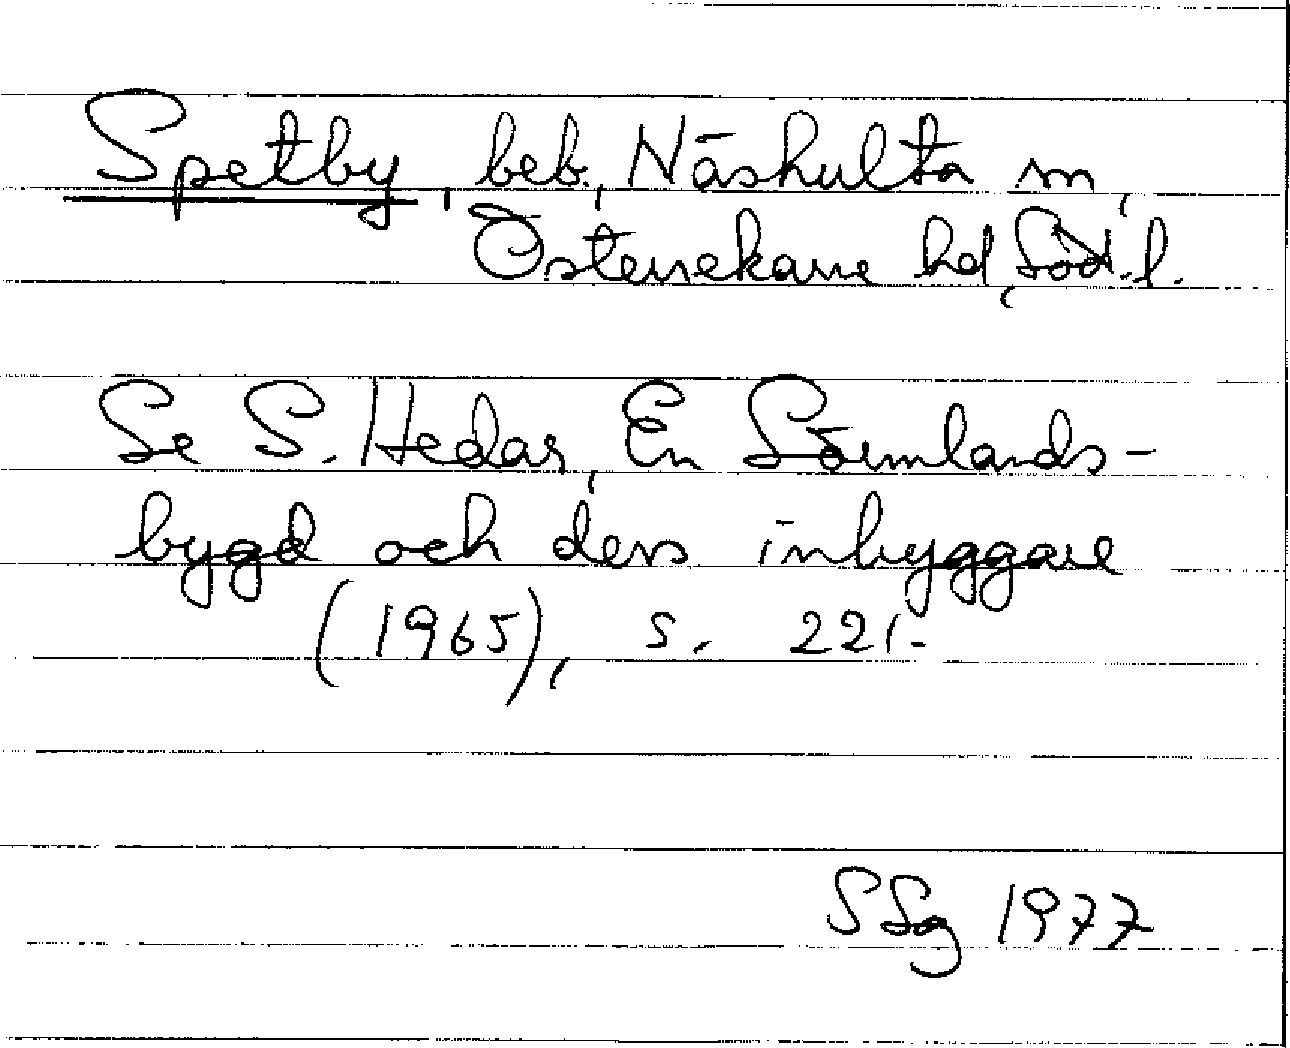 Spetby, beb., Näshulta sn,
Österrekarne hd, Söd.l.
Se S. Hedar, En Sörmlands-
bygd och dess inbyggare
(1965), s. 221.
SSg 1977